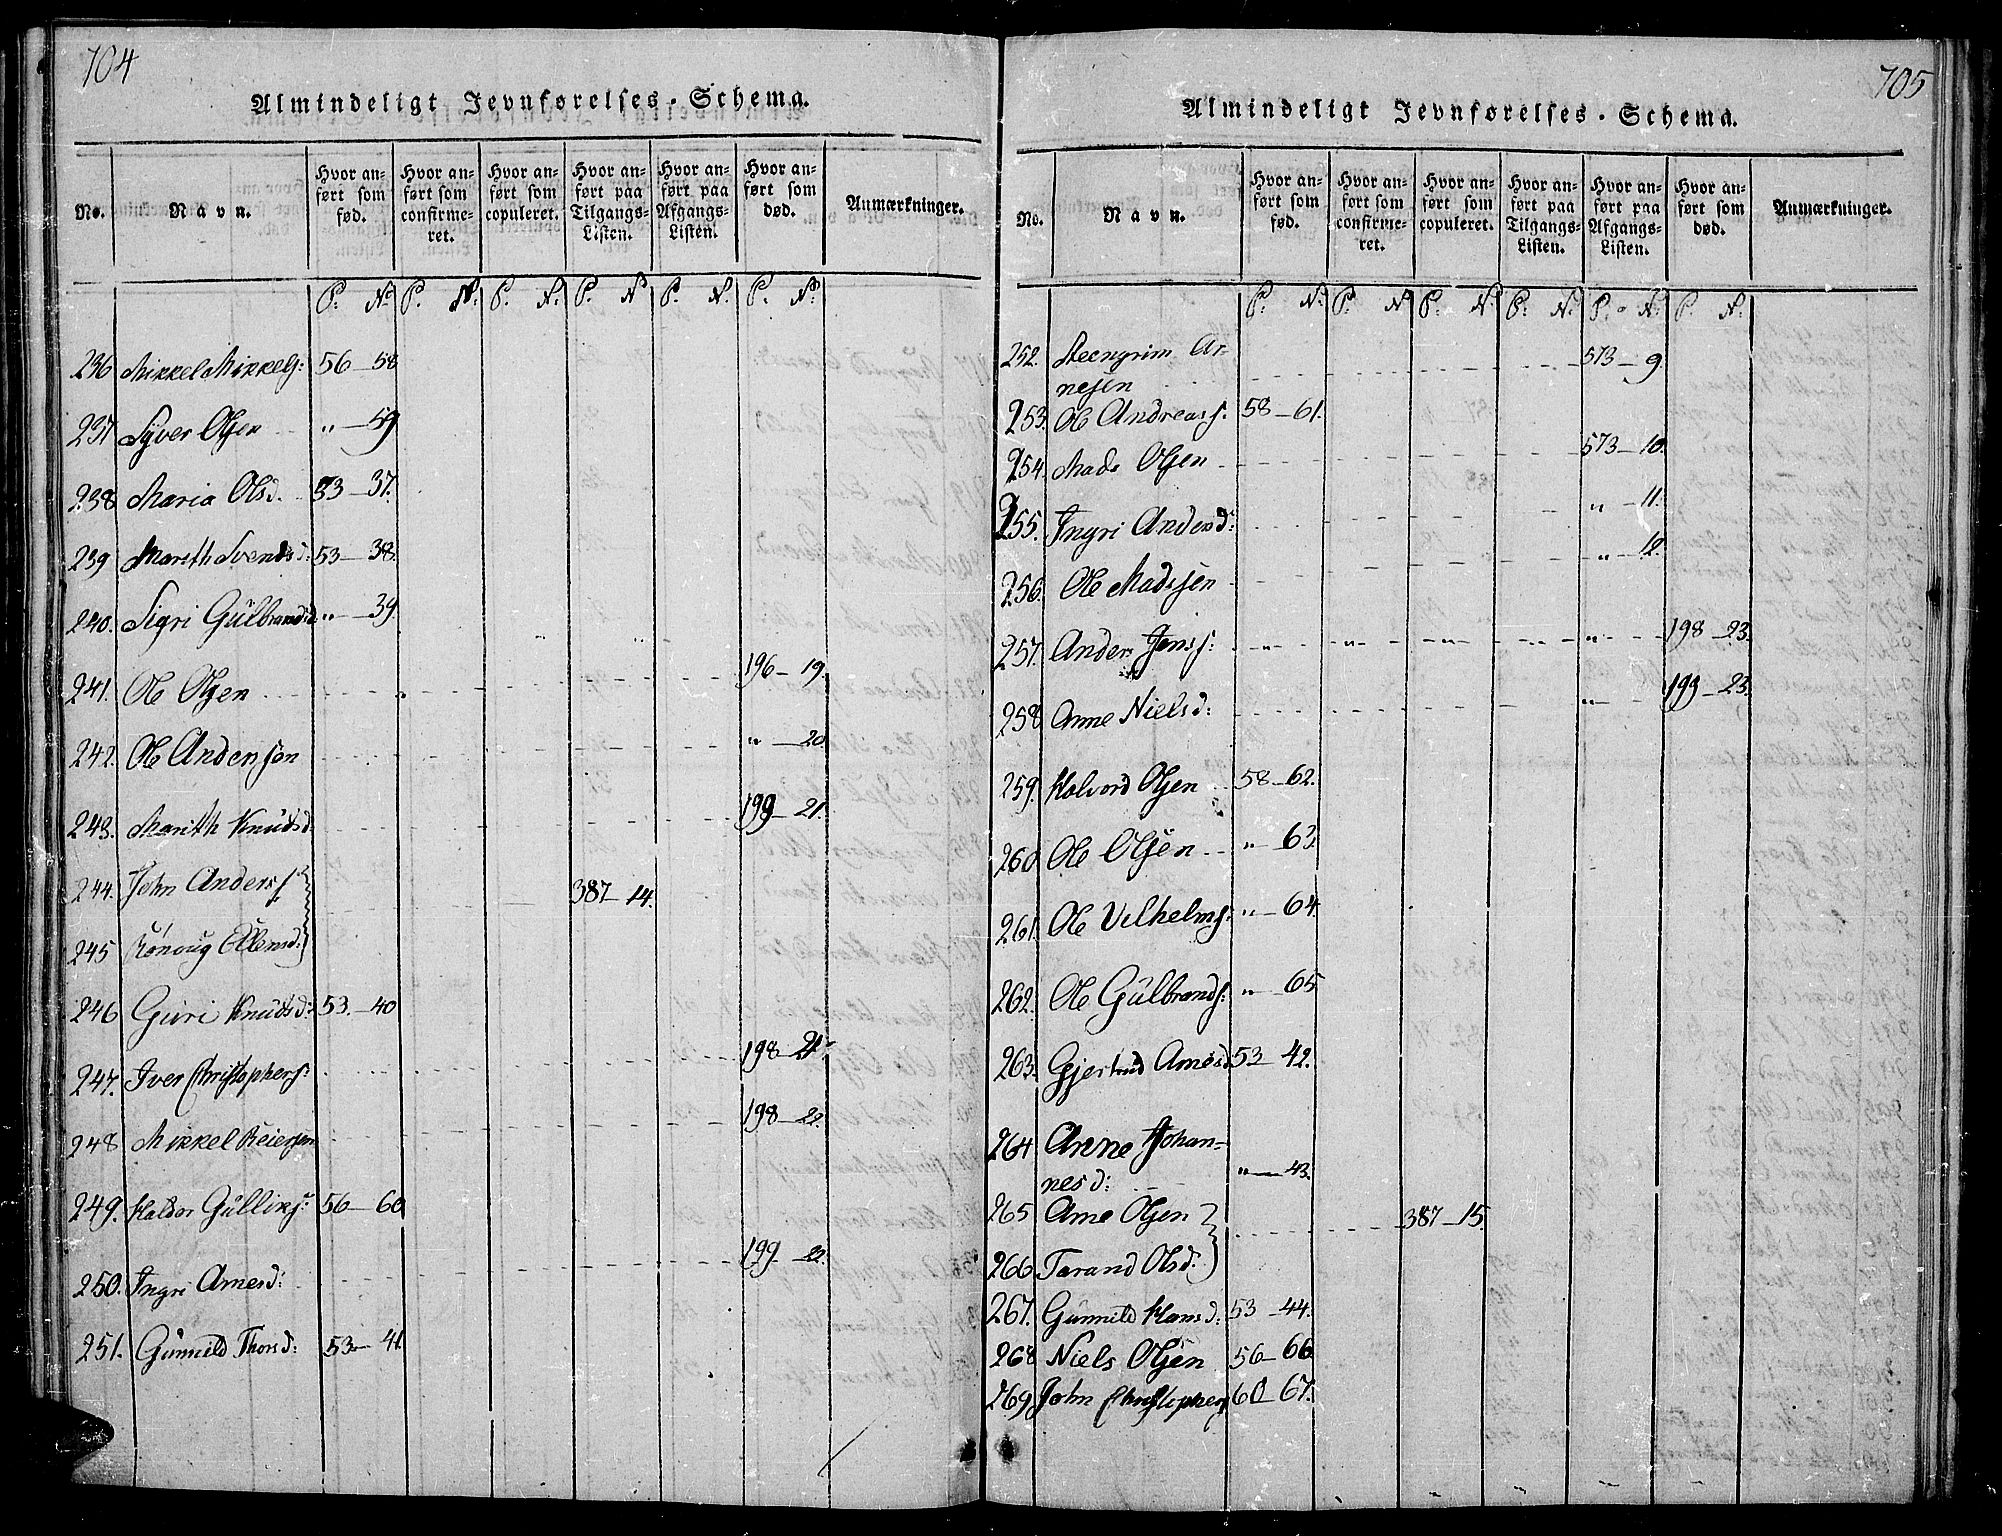 704
Almindeligt Jevnførelses-Schema.
No. Navn. Hvor anført som fød. Hvor anført som confirmeret. Hvor anført som copuleret. Hvor anført paa Tilgangs-Listen. Hvor anført paa Afgangs-Listen. Hvor anført som død. Anmærkninger.
P. No P. N. P. N. P. N P. N. P. No
236 Mikkel Mikkels: 56 - 58
237 Syver Olsen „ - 59
238 Maria Olsd. 53 - 37.
239 Marith Svendsd: 53 - 38.
240. Sigri Gulbrandsd „ - 39.
241. Ole Olsen 196 - 19.
242. Ole Andersen „ - 20
243. Marith Knudsd 199 - 21.
244. John Anders: 387 - 14.
245 Rønnug Ellensd:
246 Guri Knudsd: 53 - 40
247. Iver Christophers: 198 - 21
248 Mikkel Reiersen 198 - 22
249. Haldor Gulliks: 56 - 60
250. Ingri Arnesd: 199 - 22.
251. Gunnild Thorsd: 53 - 41.
705
Almindeligt Jevnførelses-Schema.
No. Navn. Hvor anført som fød. Hvor anført som confirmeret. Hvor anført som copuleret. Hvor anført paa Tilgangs-Listen. Hvor anført paa Afgangs-Listen. Hvor anført som død. Anmærkninger.
P. N. P. N P. N. P. N. P. N. P. N.
252. Steengrim Ar- 573 - 9.
nesen
253. Ole Andreas: 58 - 61.
254. Mads Olsen 573 - 10.
255. Ingri Andersd: „ 11.
256. Ole Madssen „ - 12
257. Anders Jens: 198 - 23.
258 Anne Nielsd: 199 - 23.
259. Halvord Olsen 58 - 62.
260 Ole Olsen „ - 63
261. Ole Vilhelms: „ - 64.
262. Ole Gulbrands: „ - 65
263. Gjertrud Arnesd 53 - 42.
264 Anne Johan-
nesd: „ - 43.
265 Arne Olsen 387 - 15.
266 Tarand Olsd:
267. Gunnild Hansd: 53 - 44.
268 Niels Olsen 56 - 66
269 John Christophers 60 - 67.